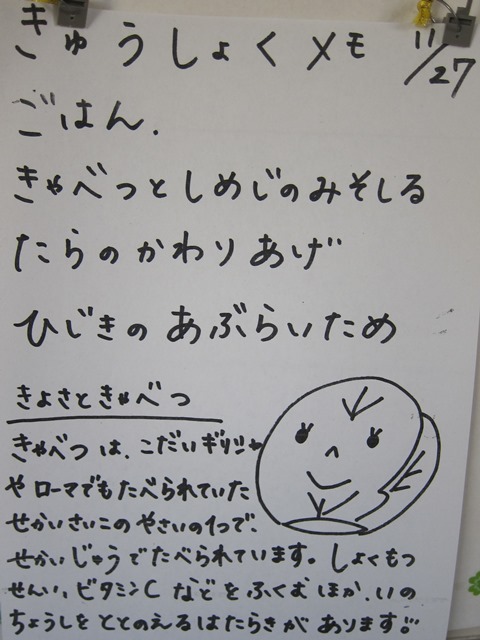 きゅうしょくメモ 11/27
ごはん.
きゃべつとしめじのみそしる
たらのかわりあげ
ひじきのあぶらいため
きよさときゃべつ
きゃべつは、こだいギリシャ
やローマでもたべられていた
せかいさいこのやさいの1つで、
せかいじゅうでたべられています。しょくもつ
せんい、ビタミンCなどをふくむほか、いの
ちょうしをととのえるはたらきがあります!!